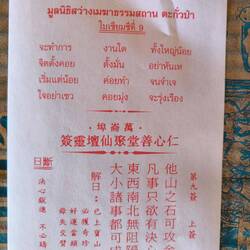 มูลนิธิสว่างเมฆาธรรมสถาน ตะกั่วป่า
ใบเซียมซีที่ 9
จะทำการ งานใด ทั้งใหญ่น้อย
จิตตั้งคอย ตั้งมั่น อย่าหันเห
เริ่มแต่น้อย ค่อยทำ จนจำเจ
อย่าไขว้เขว คอยมุ่ง จะรุ่งเรือง
萬崙埠
仁心善堂聚仙壇靈簽
第九簽 上簽
他山之石可攻
凡事只欲有決心
東西南北無阻
大小諸事都可
解曰
日斷